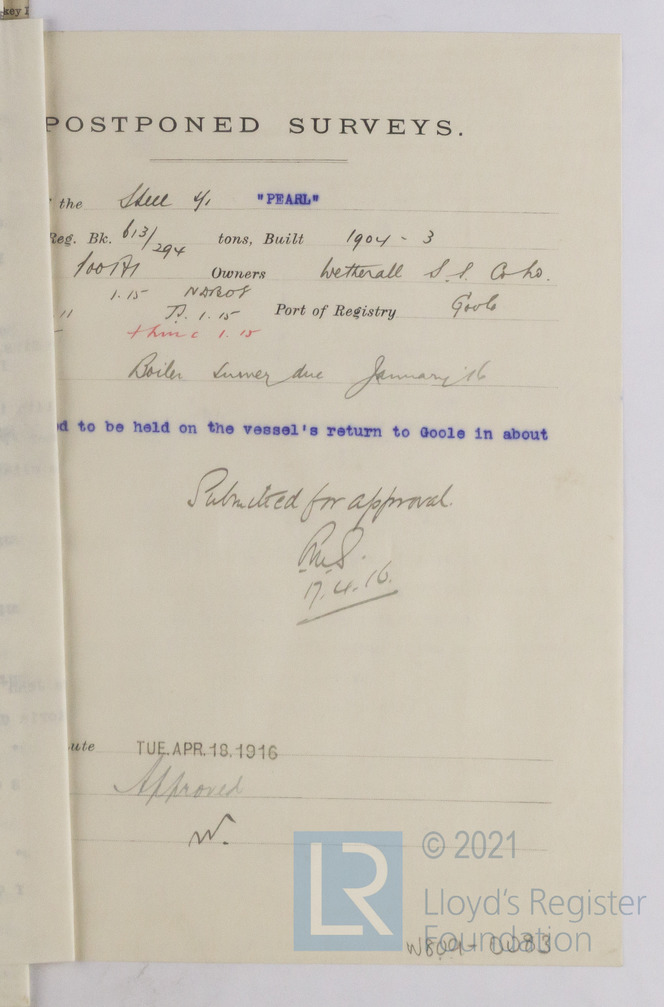 key I
POSTPONED SURVEYS.
the Steel "PEARL"
Reg. Bk. 613/294 tons, Built 1904 - 3
100A1 Owners Wetherall S.S. Co Ld.
1.15
11 1.15 Port of Registry Goole
1.15
Boiler Survey due January '16
d to be held on the vessel's return to Goole in about
Submitted for approval.
17.4.16.
ute TUE. APR. 18. 1916
Approved
W.
© 2021
LR
Lloyd's Register
Foundation
W809-0083